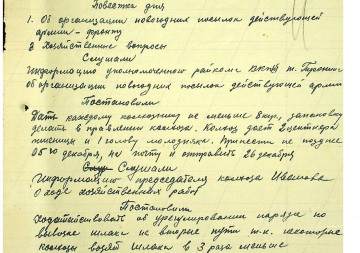 Повестка дня
1. Об организации новогодних посылок действующей
армии - фронту
2. Хозяйственные вопросы
Слушали
Информацию уполномоченного райкома ВКП(б) т.
об организации новогодних посылок действующей армии
Постановили
Дать каждому колхознику не меньше 8 кусков, запаковку
делать в правлении колхоза. Колхоз дает 2 центнера
пшеницы и 1 голову молодняка. Принести не позднее
25 декабря, на почту и отправить 26 декабря
Слушали
Информацию председателя колхоза Иванова
О ходе хозяйственных работ
Постановили
Ходатайствовать об урегулировании наряда по
вывозке шлака на вторые пути т.к. некоторые
колхозы возят шлака в 3 раза меньше